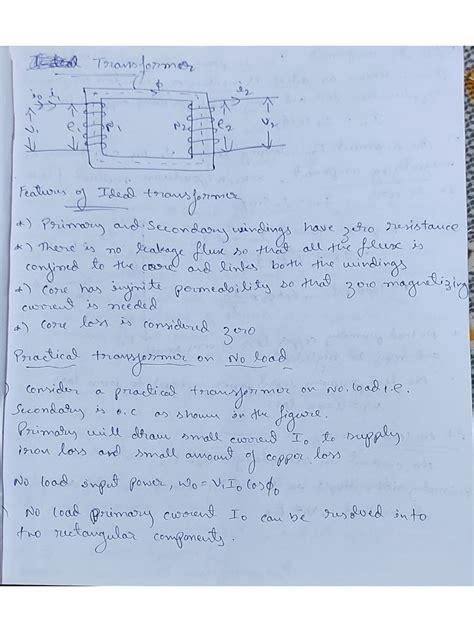 Ideal Transformer
ϕ
i0 i1 i2
V1 e1 N1 N2 e2 V2
Features of Ideal transformer
*) Primary and Secondary windings have zero resistance
*) There is no leakage flux so that all the flux is
confined to the core and links both the windings
*) Core has infinite permeability so that zero magnetizing
current is needed
*) Core loss is considered zero
Practical transformer on No load
) Consider a practical transformer on No. load i.e.
Secondary is o.c as shown in the figure.
Primary will draw small current I0 to supply
iron loss and small amount of copper loss
No load input power, W0 = V1 I0 cos ϕ0
) No load primary current I0 can be resolved into
two rectangular components.